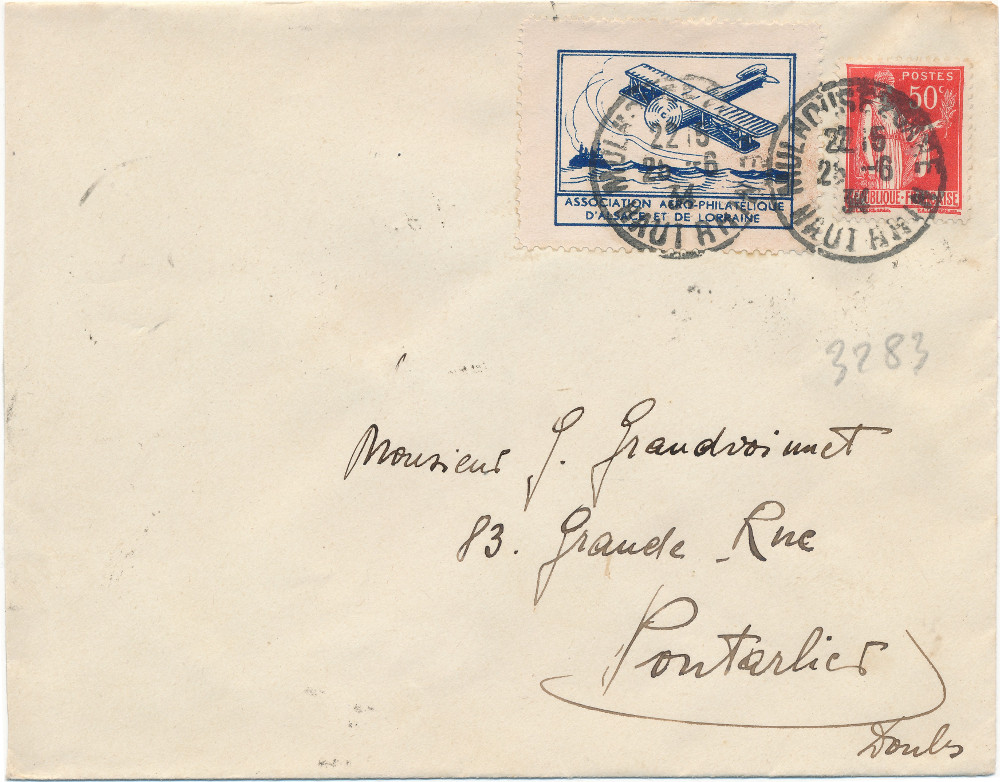 ASSOCIATION AÉRO-PHILATÉLIQUE
D'ALSACE ET DE LORRAINE
POSTES
50c
RÉPUBLIQUE-FRANÇAISE
MULHOUSE
22 15
25 -6
34
HAUT RHIN
MULHOUSE GARE
22 15
25 -6
34
HAUT RHIN
3283
Monsieur G. Grandvoinnet
83. Grande Rue
Pontarlier
Doubs